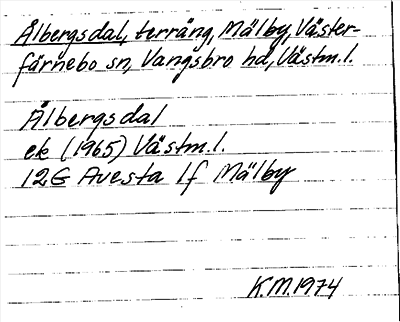 Ålbergsdal, terräng, Mälby, Väster-
färnebo sn, Vangsbro hd, Västm.l.
Ålbergsdal
ek (1965) Västm.l.
12G Avesta 1f Mälby
K.M.1974